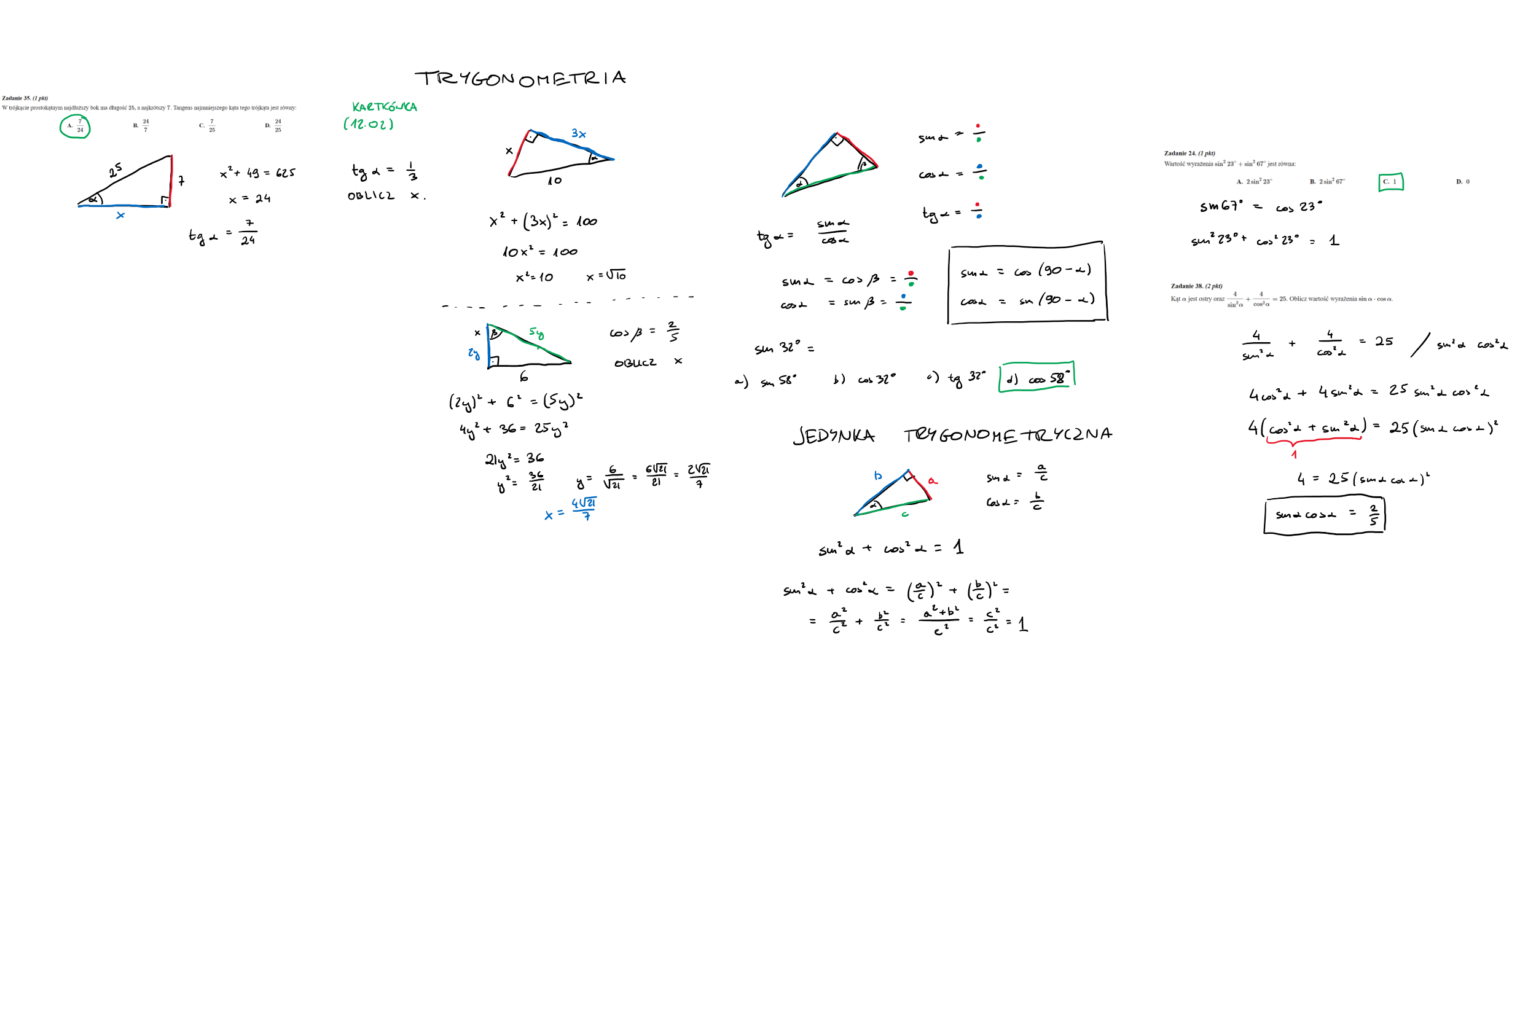 TRYGONOMETRIA
Zadanie 35. (1 pkt)
W trójkącie prostokątnym najdłuższy bok ma długość 25, a najkrótszy 7. Tangens najmniejszego kąta tego trójkąta jest równy:
A. 7/24 B. 24/7 C. 7/25 D. 24/25
25
7
α
x
x² + 49 = 625
x = 24
tg α = 7/24
KARTKÓWKA
(12.02)
tg α = 1/3
OBLICZ x.
3x
x
α
10
x² + (3x)² = 100
10x² = 100
x² = 10 x = √10
x
β
5y
2y
6
cos β = 2/5
OBLICZ x
(2y)² + 6² = (5y)²
4y² + 36 = 25y²
21y² = 36
y² = 36/21 y = 6/√21 = 6√21/21 = 2√21/7
x = 4√21/7
α
β
sin α =
cos α =
tg α =
tg α = sin α / cos α
sin α = cos β =
cos α = sin β =
sin α = cos (90 - α)
cos α = sin (90 - α)
sin 32° =
a) sin 58° b) cos 32° c) tg 32° d) cos 58°
JEDYNKA TRYGONOMETRYCZNA
b
a
α
c
sin α = a/c
cos α = b/c
sin² α + cos² α = 1
sin² α + cos² α = (a/c)² + (b/c)² =
= a²/c² + b²/c² = a²+b²/c² = c²/c² = 1
Zadanie 24. (1 pkt)
Wartość wyrażenia sin² 23° + sin² 67° jest równa:
A. 2 sin² 23° B. 2 sin² 67° C. 1 D. 0
sin 67° = cos 23°
sin² 23° + cos² 23° = 1
Zadanie 38. (2 pkt)
Kąt α jest ostry oraz 4/sin² α + 4/cos² α = 25. Oblicz wartość wyrażenia sin α · cos α.
4/sin² α + 4/cos² α = 25 / sin² α cos² α
4 cos² α + 4 sin² α = 25 sin² α cos² α
4(cos² α + sin² α) = 25 (sin α cos α)²
1
4 = 25 (sin α cos α)²
sin α cos α = 2/5